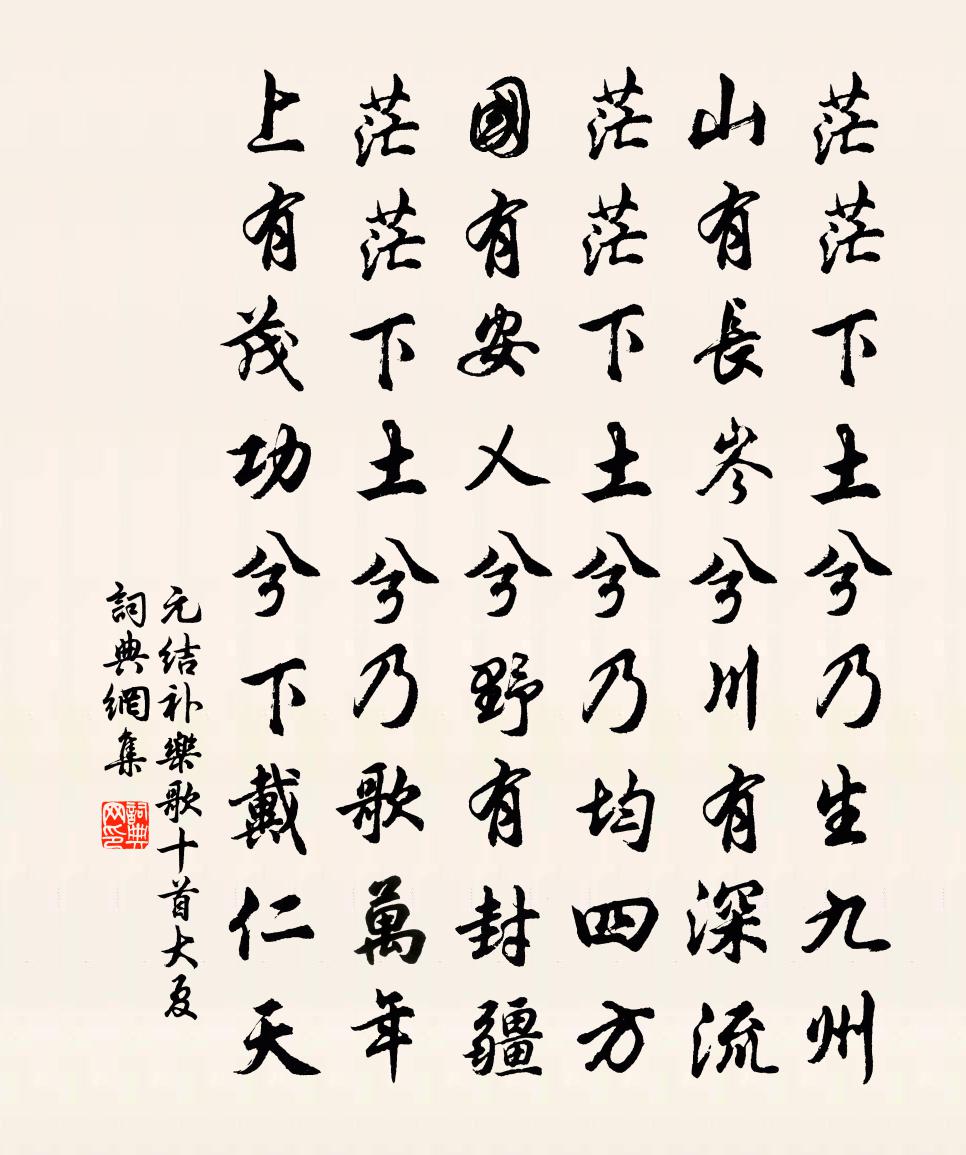 茫茫下土兮乃生九州
山有長岑兮川有深流
茫茫下土兮乃均四方
國有安人兮野有封疆
茫茫下土兮乃歌萬年
上有茂功兮下戴仁天
元结补樂歌十首大夏
詞典網集
詞典网印